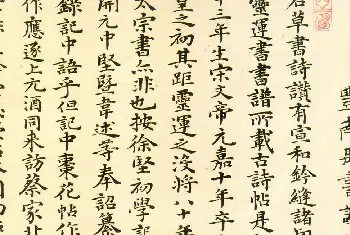 豐南禺書
右草書詩讚有宣和鈐縫諸印
靈運書書譜所載古詩帖是
十三年生宋文帝元嘉十年卒
皇之初其距靈運之沒將八十年
太宗書亦非也按徐堅初學記
開元中堅暨韋述等奉詔纂
錄記中語乎但記中棗花帖作
作應逐上元酒同來訪蔡家北